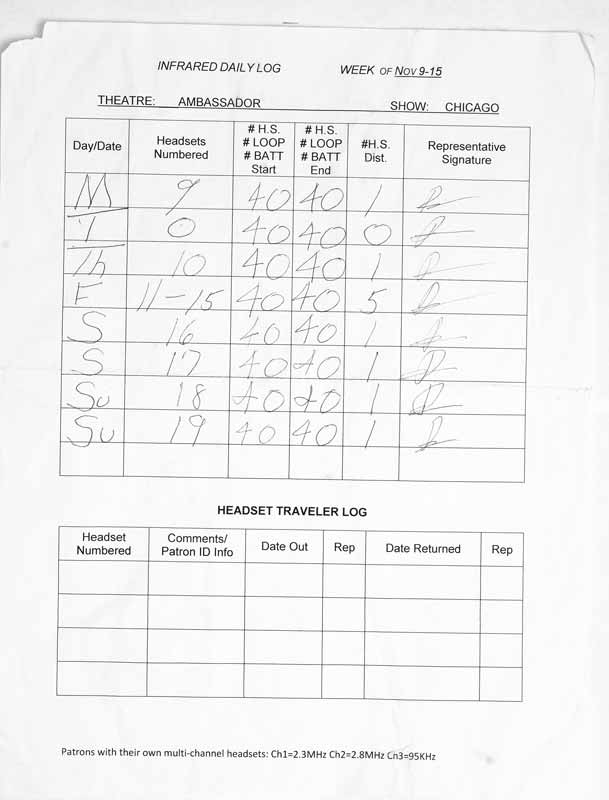 INFRARED DAILY LOG WEEK OF NOV 9-15
THEATRE: AMBASSADOR SHOW: CHICAGO
Day/Date Headsets Numbered # H.S. # LOOP # BATT Start # H.S. # LOOP # BATT End #H.S. Dist. Representative Signature
M 9 40 40 1
T 0 40 40 0
Th 10 40 40 1
F 11-15 40 40 5
S 16 40 40 1
S 17 40 40 1
Su 18 40 40 1
Su 19 40 40 1
HEADSET TRAVELER LOG
Headset Numbered Comments/ Patron ID Info Date Out Rep Date Returned Rep
Patrons with their own multi-channel headsets: Ch1=2.3MHz Ch2=2.8MHz Cn3=95KHz